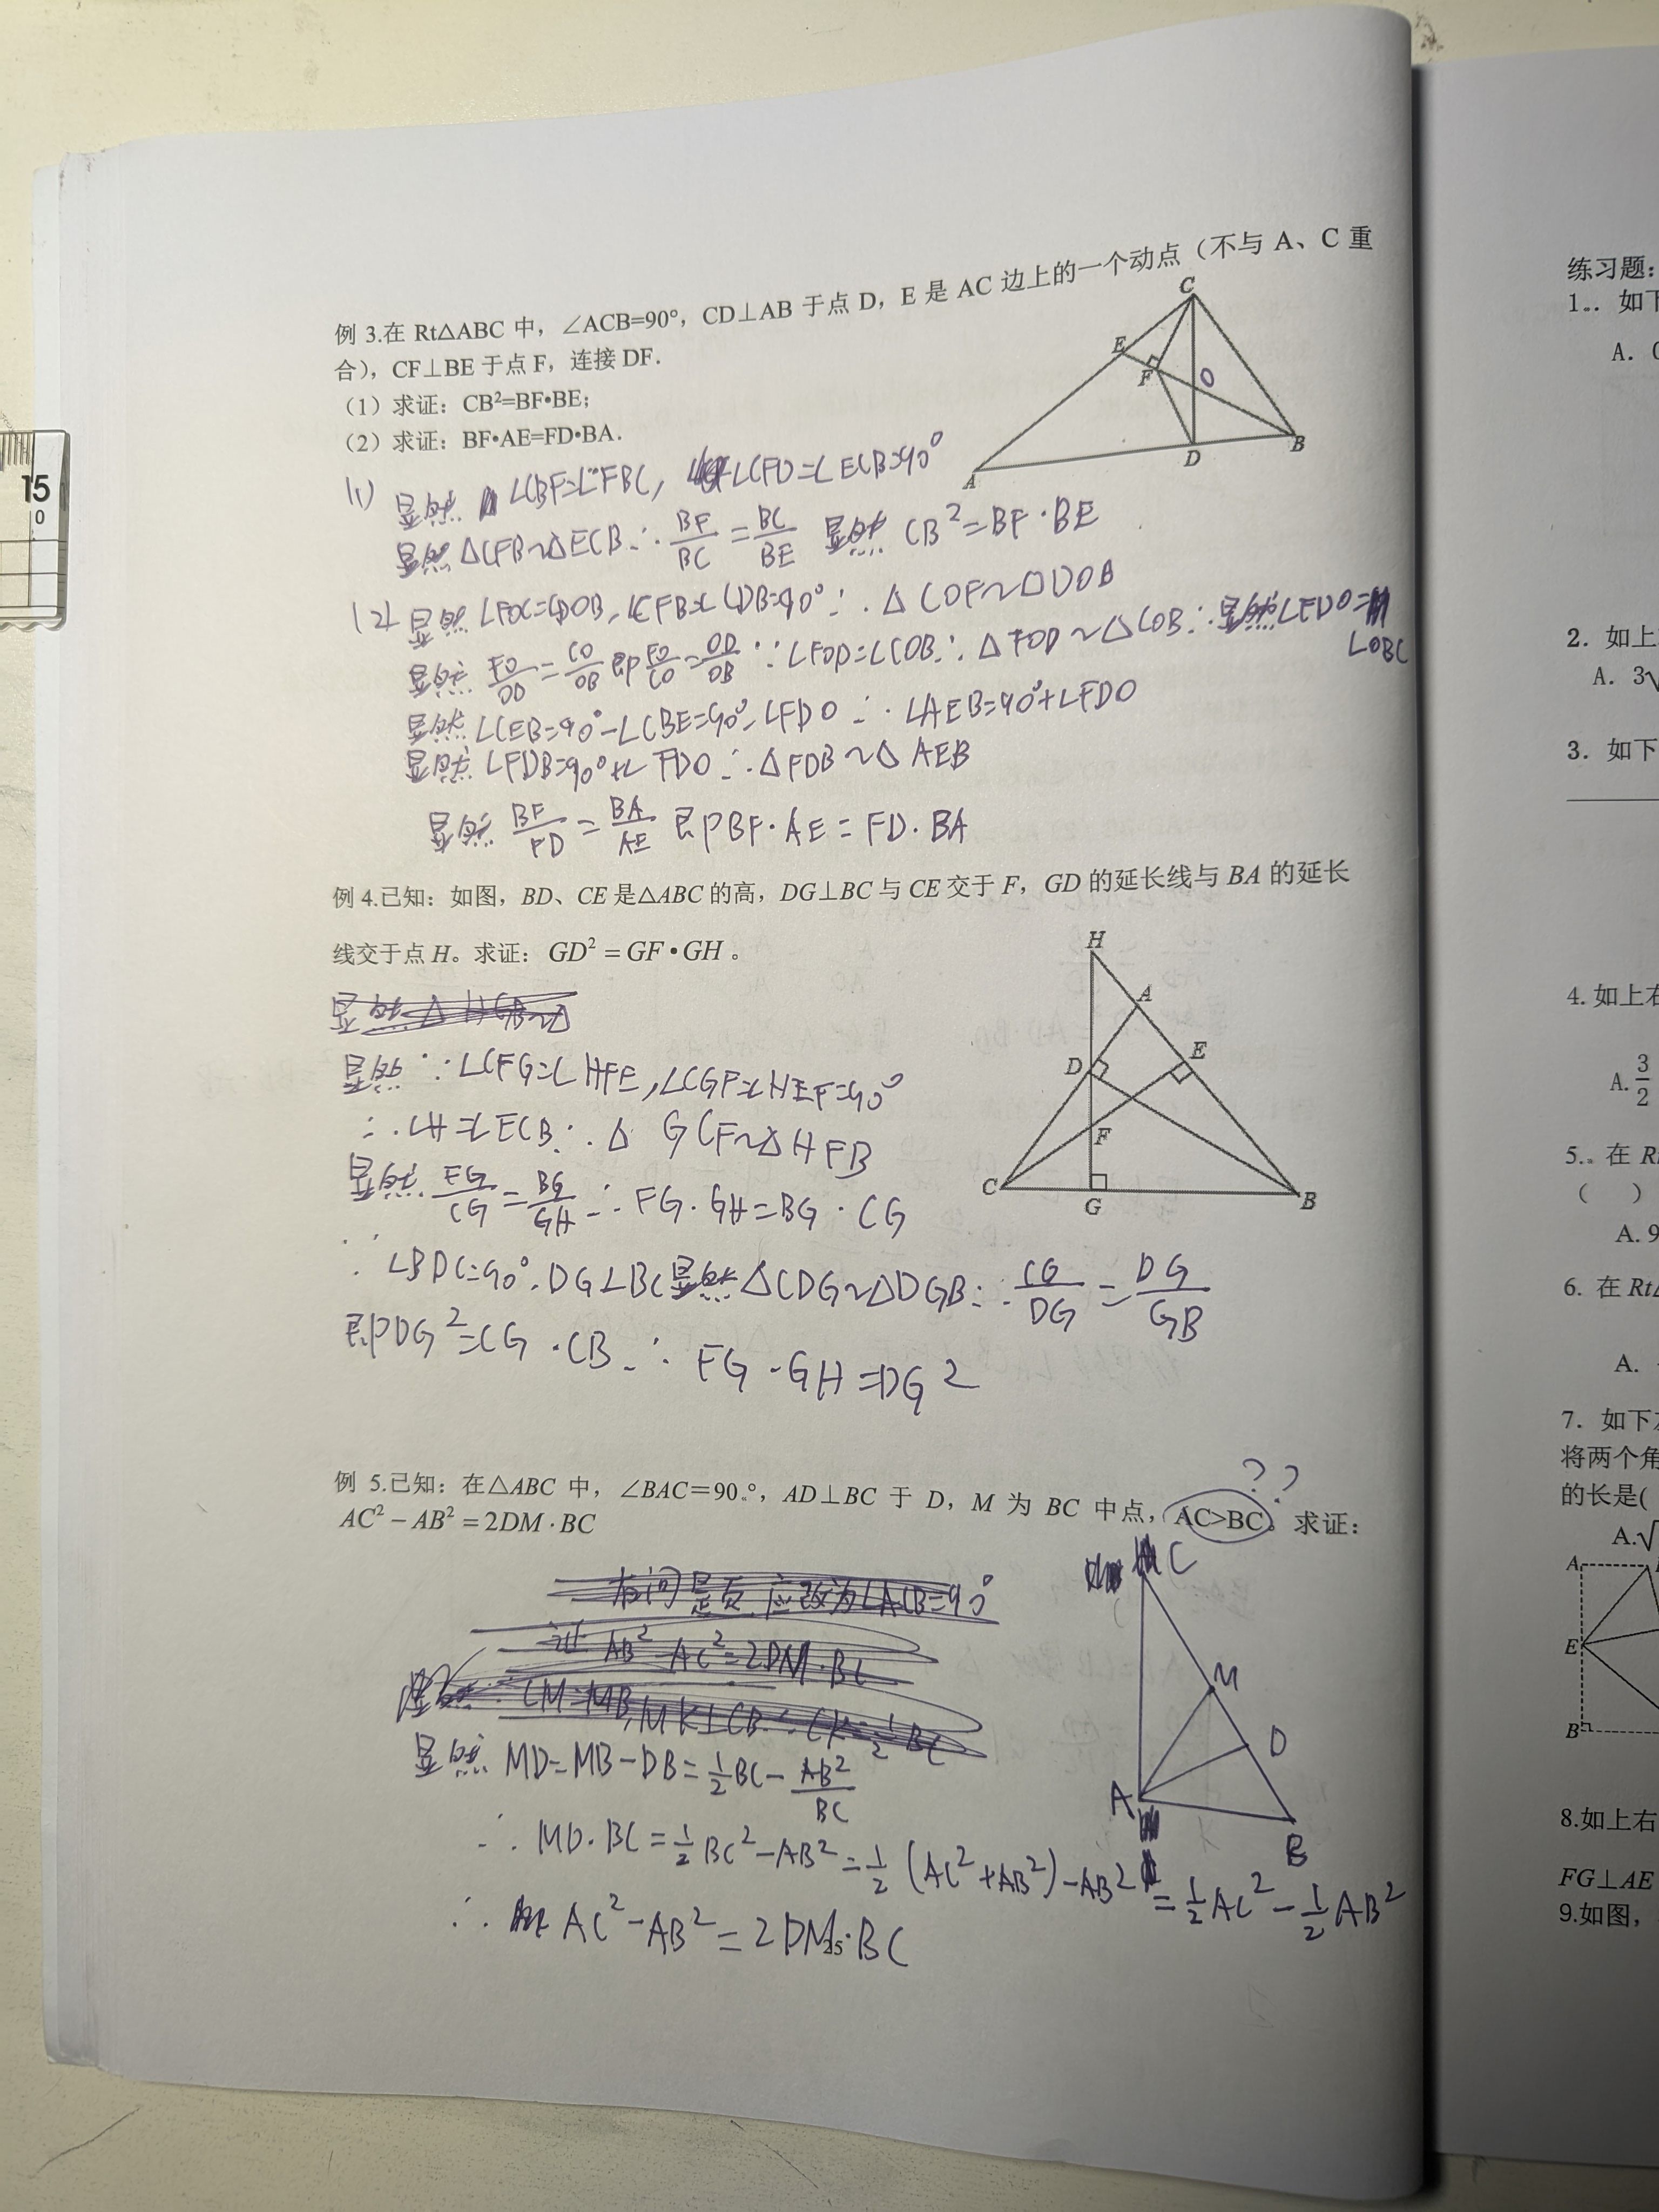 15
0
例 3.在 Rt△ABC 中，∠ACB=90°，CD⊥AB 于点 D，E 是 AC 边上的一个动点（不与 A、C 重
合），CF⊥BE 于点 F，连接 DF.
（1）求证：CB²=BF•BE；
（2）求证：BF•AE=FD•BA.
C
E
F
O
A
D
B
(1) 显然 ∠CBF=∠FBC, ∠CFO=∠ECB=90°
显然 △CFB~△ECB ∴ BF/BC = BC/BE 显然 CB²=BF·BE
(2) 显然 ∠FOC=∠DOB, ∠CFB=∠CDB=90° ∴ △COF~△DOB
显然 FO/OD = CO/OB 即 FO/CO = OD/OB ∵ ∠FOD=∠COB ∴ △FOD~△COB ∴ 显然∠FDO=
∠OBC
显然 ∠CEB=90°-∠CBE=90°-∠FDO ∴ ∠AEB=90°+∠FDO
显然 ∠FDB=90°+∠FDO ∴ △FDB~△AEB
显然 BF/FD = BA/AE 即 BF·AE=FD·BA
例 4.已知：如图，BD、CE 是△ABC 的高，DG⊥BC 与 CE 交于 F，GD 的延长线与 BA 的延长
线交于点 H。求证：GD²=GF•GH。
H
A
D
E
F
C
G
B
显然 ∵ ∠CFG=∠HFE, ∠CGF=∠HEF=90°
∴ ∠H=∠ECB ∴ △GCF~△HFB
显然 FG/CG = BG/GH ∴ FG·GH=BG·CG
∵ ∠BDC=90°, DG⊥BC 显然 △CDG~△DGB ∴ CG/DG = DG/GB
即DG²=CG·CB ∴ FG·GH=DG²
例 5.已知：在△ABC 中，∠BAC＝90.°，AD⊥BC 于 D，M 为 BC 中点，AC>BC。求证：
??
AC²－AB²=2DM·BC
C
M
D
A
B
显然 MD=MB-DB=1/2BC-AB²/BC
∴ MD·BC=1/2BC²-AB²=1/2(AC²+AB²)-AB²=1/2AC²-1/2AB²
∴ AC²-AB²=2DM·BC
25
练习题：
1.. 如下
A.
2. 如上
A. 3√
3. 如下
4. 如上右
A. 3/2
5.. 在 R
（ ）
A. 9
6. 在 Rt
A.
7. 如下
将两个角
的长是(
A.√
A
E
B
8.如上右
FG⊥AE
9.如图，